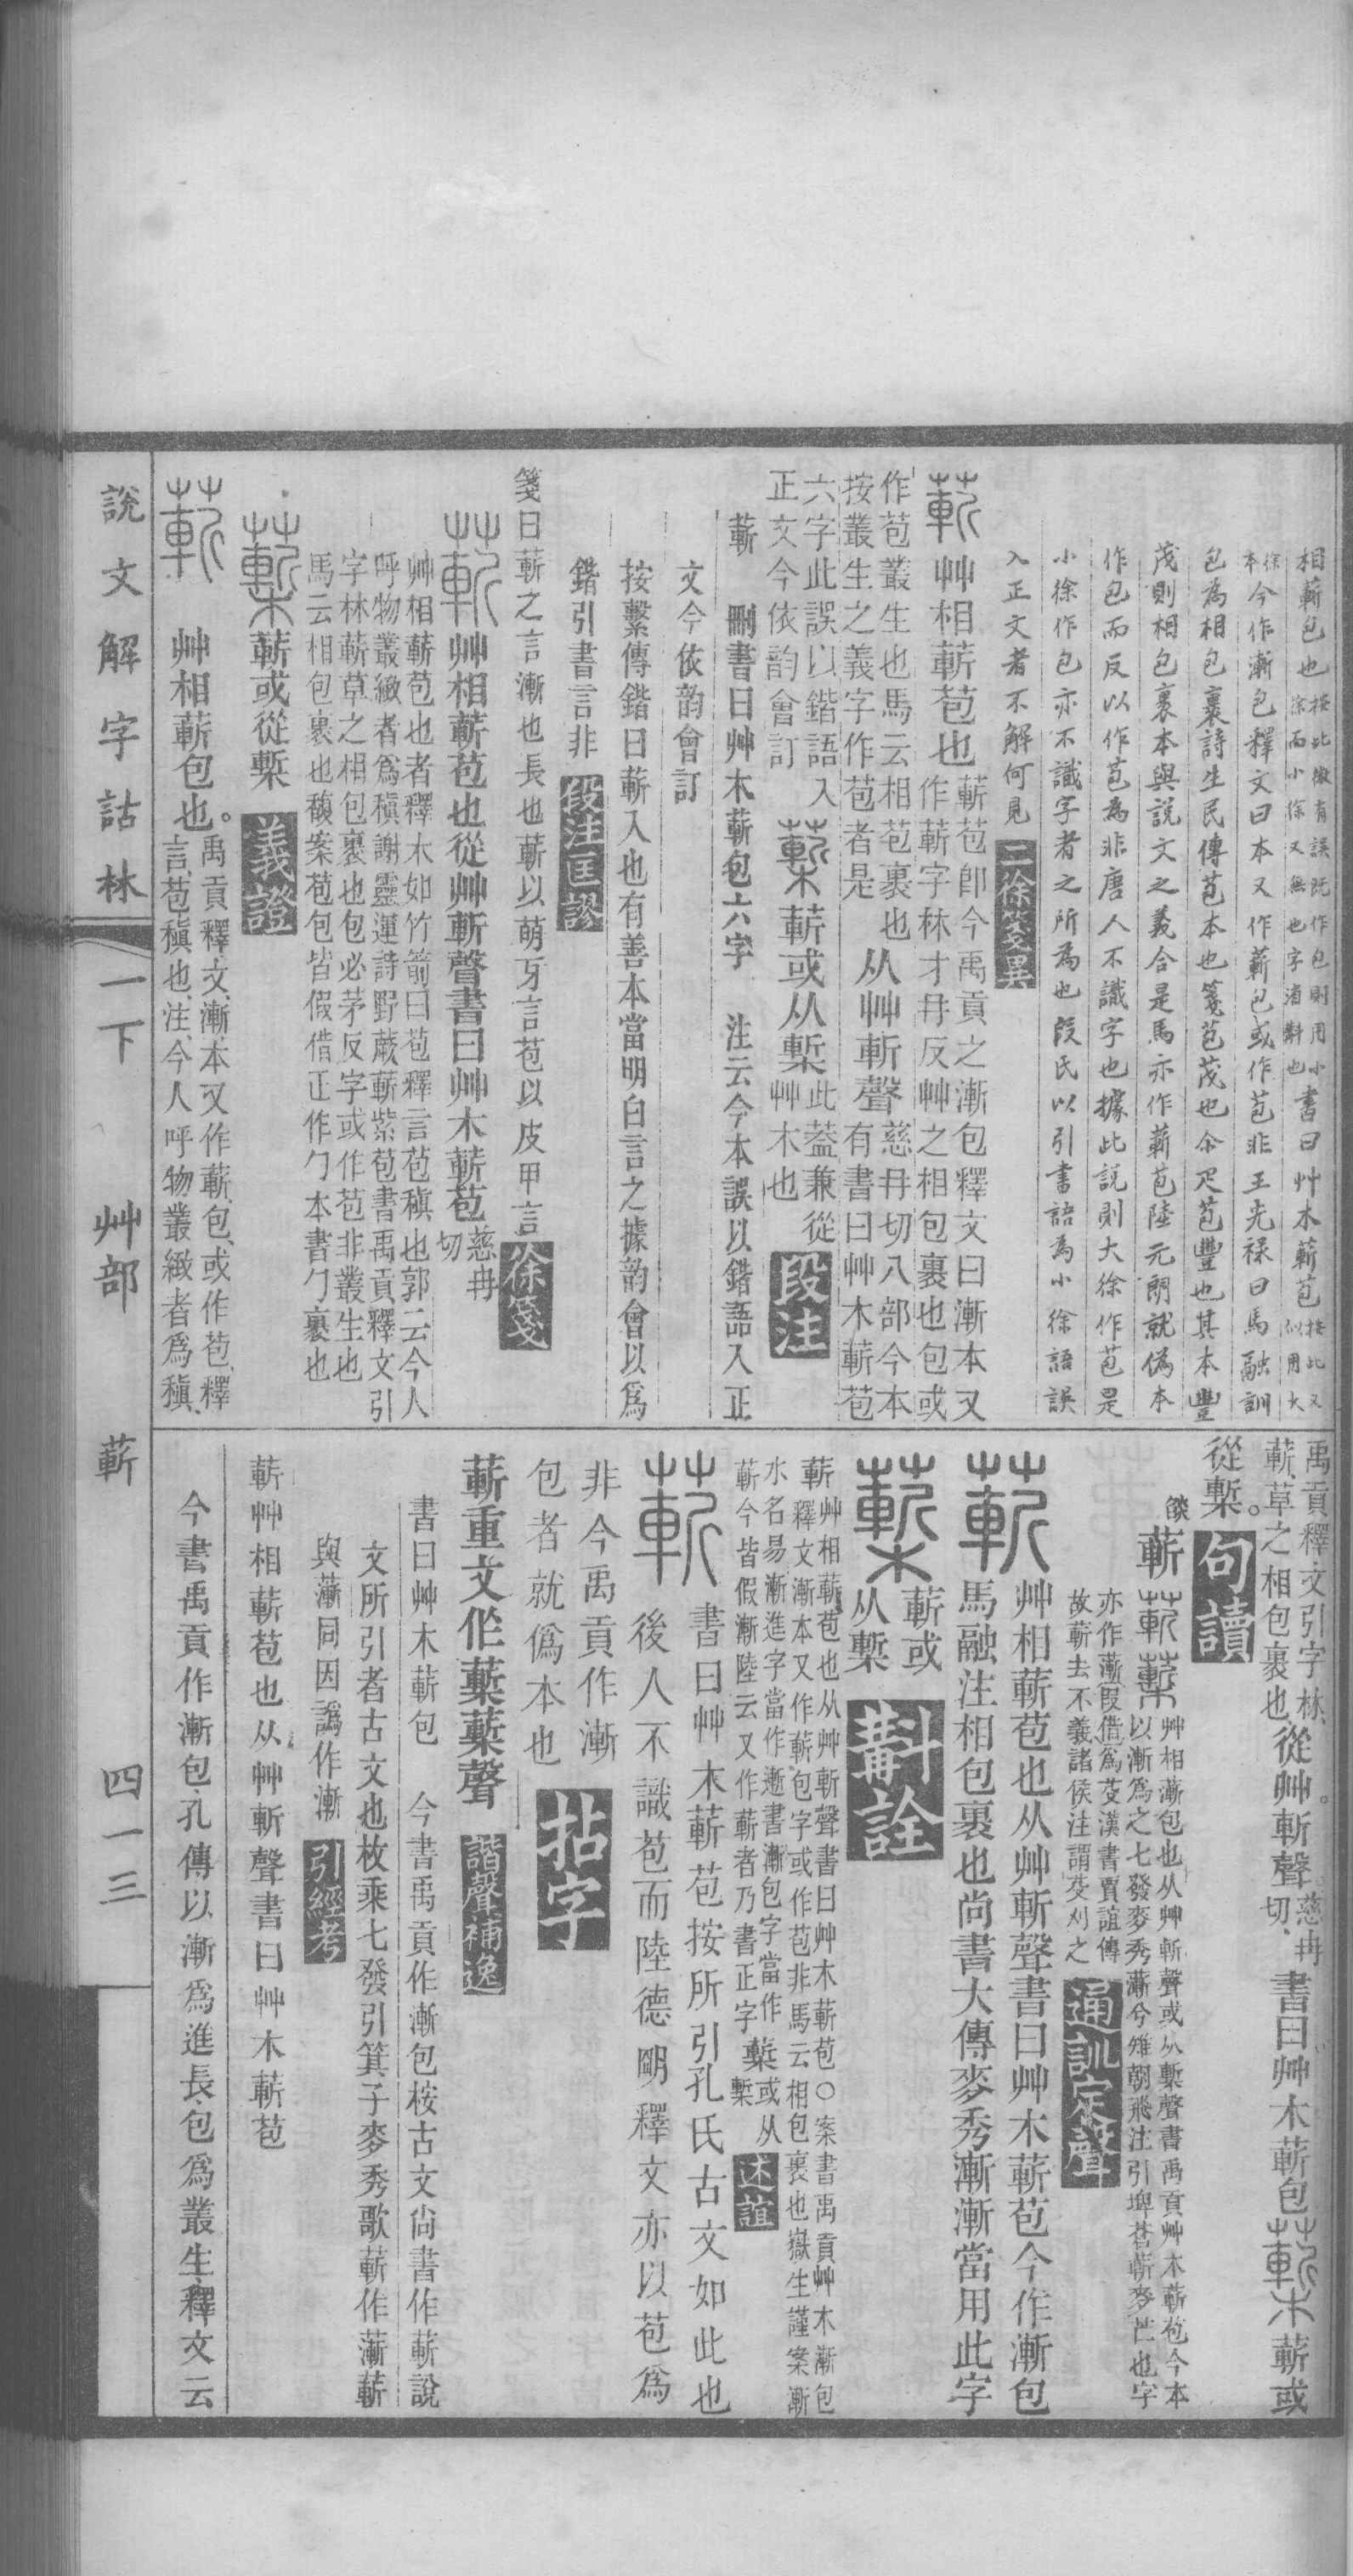 相蔪包也按此微有誤既作包則用小
徐而小徐又無也字渻斠也書曰艸木蔪苞按此又
似用大
徐
本今作漸包釋文曰本又作蔪包或作苞非王光祿曰馬融訓
包為相包裹詩生民傳苞本也箋苞茂也尒疋苞豐也其本豐
茂則相包裹本與說文之義合是馬亦作蔪苞陸元朗就偽本
作包而反以作苞為非唐人不識字也據此說則大徐作苞是
小徐作包亦不識字者之所為也段氏以引書語為小徐語誤
入正文者不解何見 二徐箋異
蔪 艸相蔪苞也蔪苞卽今禹貢之漸包釋文曰漸本又
作蔪字林才冄反艸之相包裹也包或
作苞叢生也馬云相苞裹也从艸斬聲慈冄切八部今本
按叢生之義字作苞者是有書曰艸木蔪苞
六字此誤以鍇語入
正文今依韵會訂 蔪或从槧此葢兼從
艸木也 段注
蔪 刪書曰艸木蔪包六字 注云今本誤以鍇語入正
文今依韵會訂
按繫傳鍇曰蔪入也有善本當明白言之據韵會以爲
鍇引書言非 段注匡謬
箋曰蔪之言漸也長也蔪以萌牙言苞以皮甲言 徐箋
蔪 艸相蔪苞也從艸斬聲書曰艸木蔪苞慈冉
切
艸相蔪苞也者釋木如竹箭曰苞釋言苞稹也郭云今人
呼物叢緻者爲稹謝靈運詩野蕨蔪紫苞書禹貢釋文引
字林蔪草之相包裹也包必茅反字或作苞非叢生也
馬云相包裹也馥案苞包皆假借正作勹本書勹裹也
蔪或從槧 義證
蔪 艸相蔪包也。禹貢釋文、漸、本又作蔪、包、或作苞、釋
言、苞、稹也、注、今人呼物叢緻者爲稹、
禹貢釋文引字林、
蔪、草之相包裹也、從艸。斬聲慈冉
切、書曰艸木蔪包 蔪或
從槧。 句讀
蔪 艸相漸包也从艸斬聲或从槧聲書禹貢艸木蔪苞今本
以漸爲之七發麥秀蔪兮雉朝飛注引埤蒼蔪麥芒也字
亦作蔪叚借爲芟漢書賈誼傳
故蔪去不義諸侯注謂芟刈之 通訓定聲
蔪 艸相蔪苞也从艸斬聲書曰艸木蔪苞今作漸包
馬融注相包裹也尚書大傳麥秀漸漸當用此字
蔪或
从槧 斠詮
蔪艸相蔪苞也从艸斬聲書曰艸木蔪苞○案書禹貢艸木漸包
釋文漸本又作蔪包字或作苞非馬云相包裹也嶽生謹案漸
水名易漸進字當作㨻書漸包字當作
蔪今皆假漸陸云又作蔪者乃書正字 蔪或从
槧 述誼
蔪 書曰艸木蔪苞按所引孔氏古文如此也
後人不識苞而陸德朙釋文亦以苞爲
非今禹貢作漸
包者就僞本也 拈字
蔪重文作蔪蔪聲 諧聲補逸
書曰艸木蔪包 今書禹貢作漸包桉古文尙書作蔪說
文所引者古文也枚乘七發引箕子麥秀歌蔪作蔪蔪
與漸同因譌作漸 引經考
蔪艸相蔪苞也从艸斬聲書曰艸木蔪苞
今書禹貢作漸包孔傳以漸爲進長包爲叢生釋文云
說文解字詁林 一下 艸部 蔪 四一三